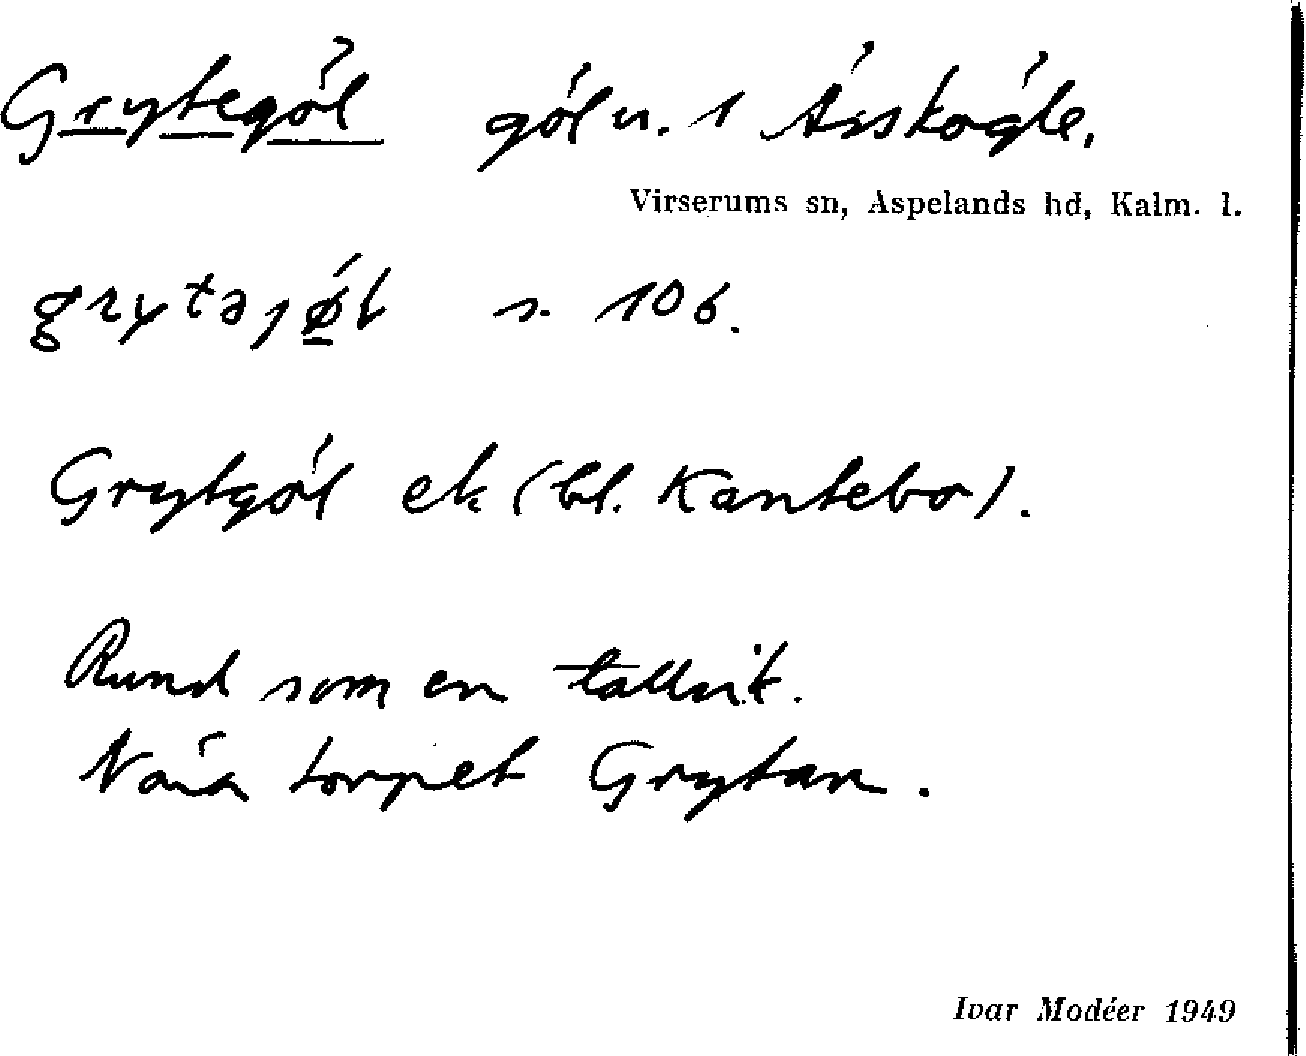 Grytegöl göl n. 1 Årskogle.
Virserums sn, Aspelands hd, Kalm. l.
grytəjøl s. 106.
Grytgöl ek (bl. Kantebo).
Rund som en tallrik.
Nära torpet Grytan.
Ivar Modéer 1949